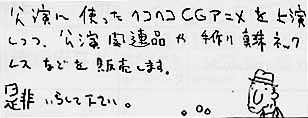 公演に使ったヘコヘコCGアニメを上演
しつつ、公演関連品や手作り真珠ネック
レスなどを販売します。
是非いらして下さい。